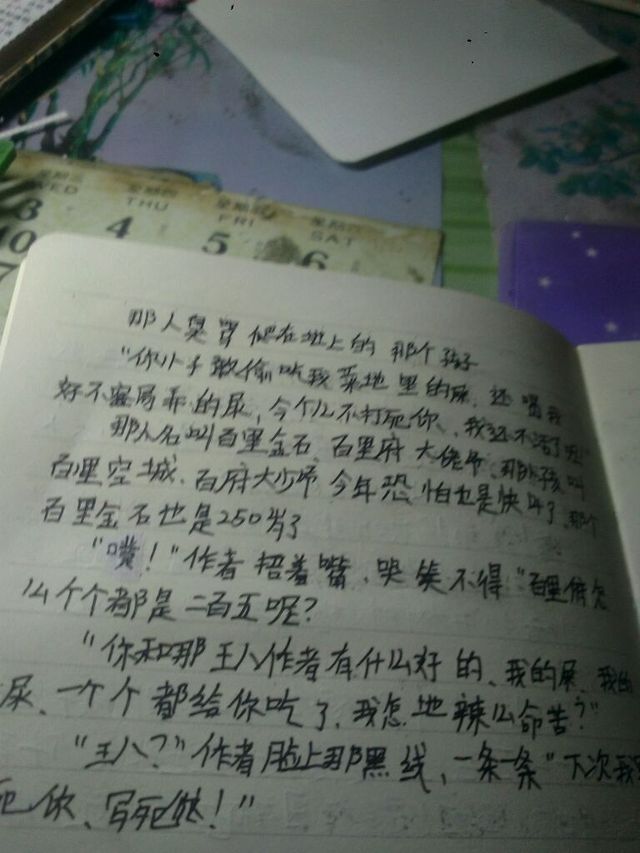 星期三 星期四 星期五 星期六
WED THU FRI SAT
3 4 5 6
10
那人臭骂爬在地上的那个孩子
"你小子敢偷吃我菜地里的屎,还喝我
好不容易乖的尿,今个儿不打死你、我还不活了呢"
那人名叫百里金石、百里府大佬师、那小孩叫
百里空城、百府大少师今年恐怕也是快 了,那个
百里金石也是250岁了
"嘴!"作者捂着嘴,哭笑不得"百里府怎
么个个都是二百五呢?
"你和那王八作者有什么好的、我的屎、我的
尿、一个个都给你吃了,我怎地辣么命苦?"
"王八?"作者脸上那黑线,一条一条"下次我
死你、写死他!"